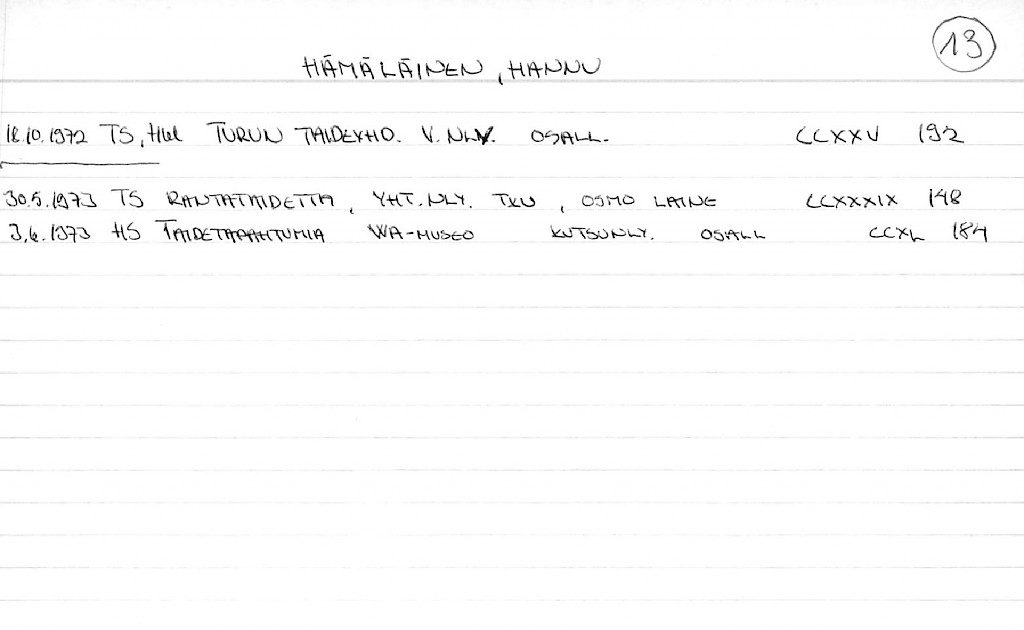 13
HÄMÄLÄINEN, HANNU
18.10.1972 TS, HUL TURUN TAIDEYHD. V. NLY. OSALL. CCXXV 192
30.5.1973 TS RANTATAIDETTA, YHT. NLY. TKU, OSMO LAINE CCXXXIX 148
3.6.1973 HS TAIDETAPAHTUMIA WA-MUSEO KUTSUNLY. OSALL CCXL 184